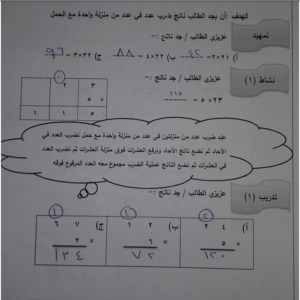 الهدف :أن يجد الطالب ناتج ضرب عدد في عدد من منزلة واحدة مع الحمل
تمهيد
عزيزي الطالب / جد ناتج :-
أ) ٢١×٢- ٤٢ ب) ٢٢×٤- ٨٨ ج) ٣٢×٣- ٩٦
نشاط (١)
عزيزي الطالب / جد ناتج :-
٢٣ ×٥ - ١١٥
١
٢ ٣
٥ ×
١ ١ ٥
عند ضرب عدد من منزلتين في عدد من منزلة واحدة مع حمل نضرب العدد في
الآحاد ثم نضع ناتج الآحاد ونرفع العشرات فوق منزلة العشرات ثم نضرب العدد
في العشرات ثم نضع الناتج عملية الضرب مجموع معه العدد المرفوع فوقه
تدريب (١)
عزيزي الطالب / جد ناتج :-
أ) ٢ ب) ١ ج) ١
٢ ٤ ١ ٢ ٦ ٧
٥ × ٦ × ٢ ×
١٢٠ ٧٢ ١٣٤